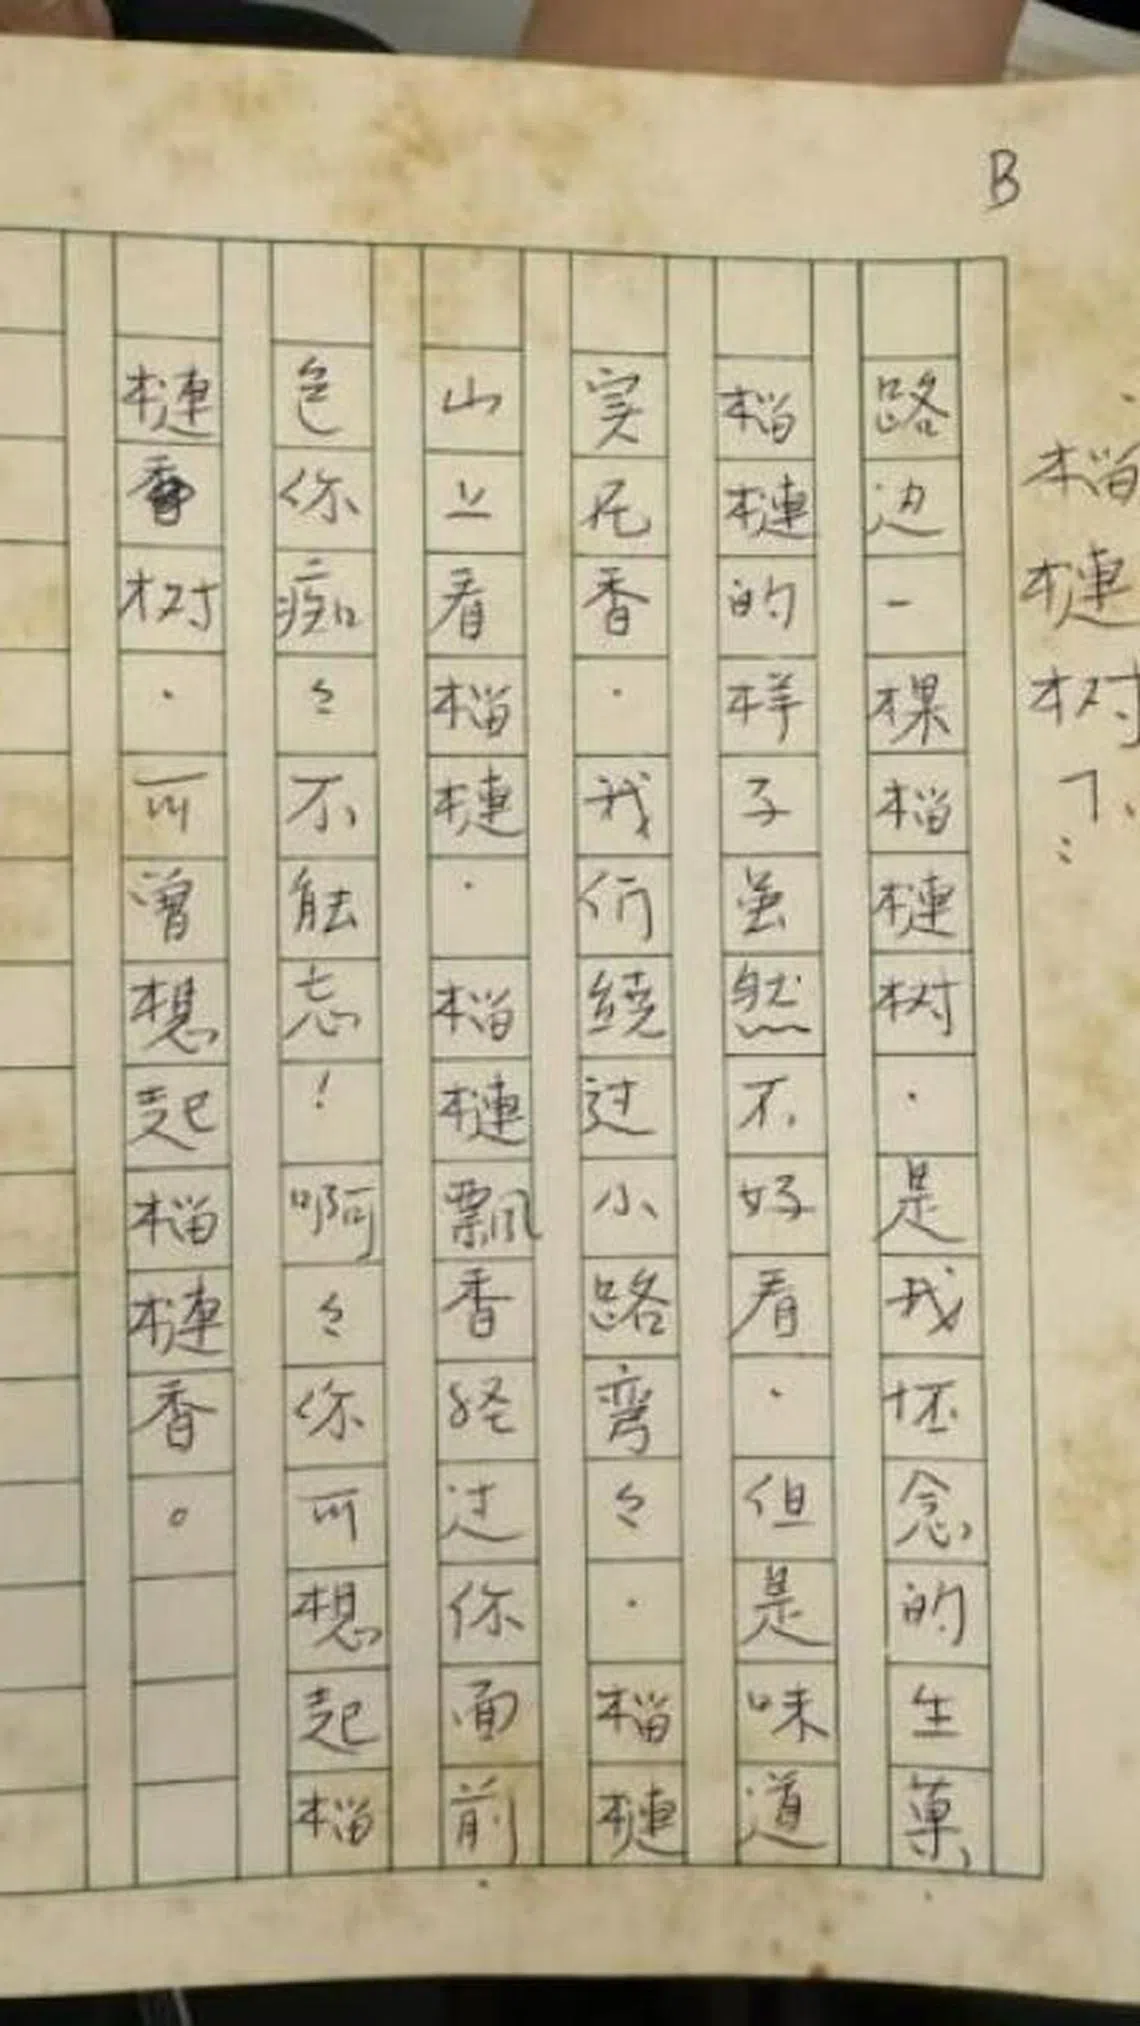 B
榴槤树下：
路边一棵榴槤树．是我怀念的生菓．
榴槤的样子虽然不好看．但是味道
实在香．我们绕过小路弯々．榴槤
山上看榴槤．榴槤飘香经过你面前．
色你痴々不能忘！啊々你可想起榴
槤树．可曾想起榴槤香。